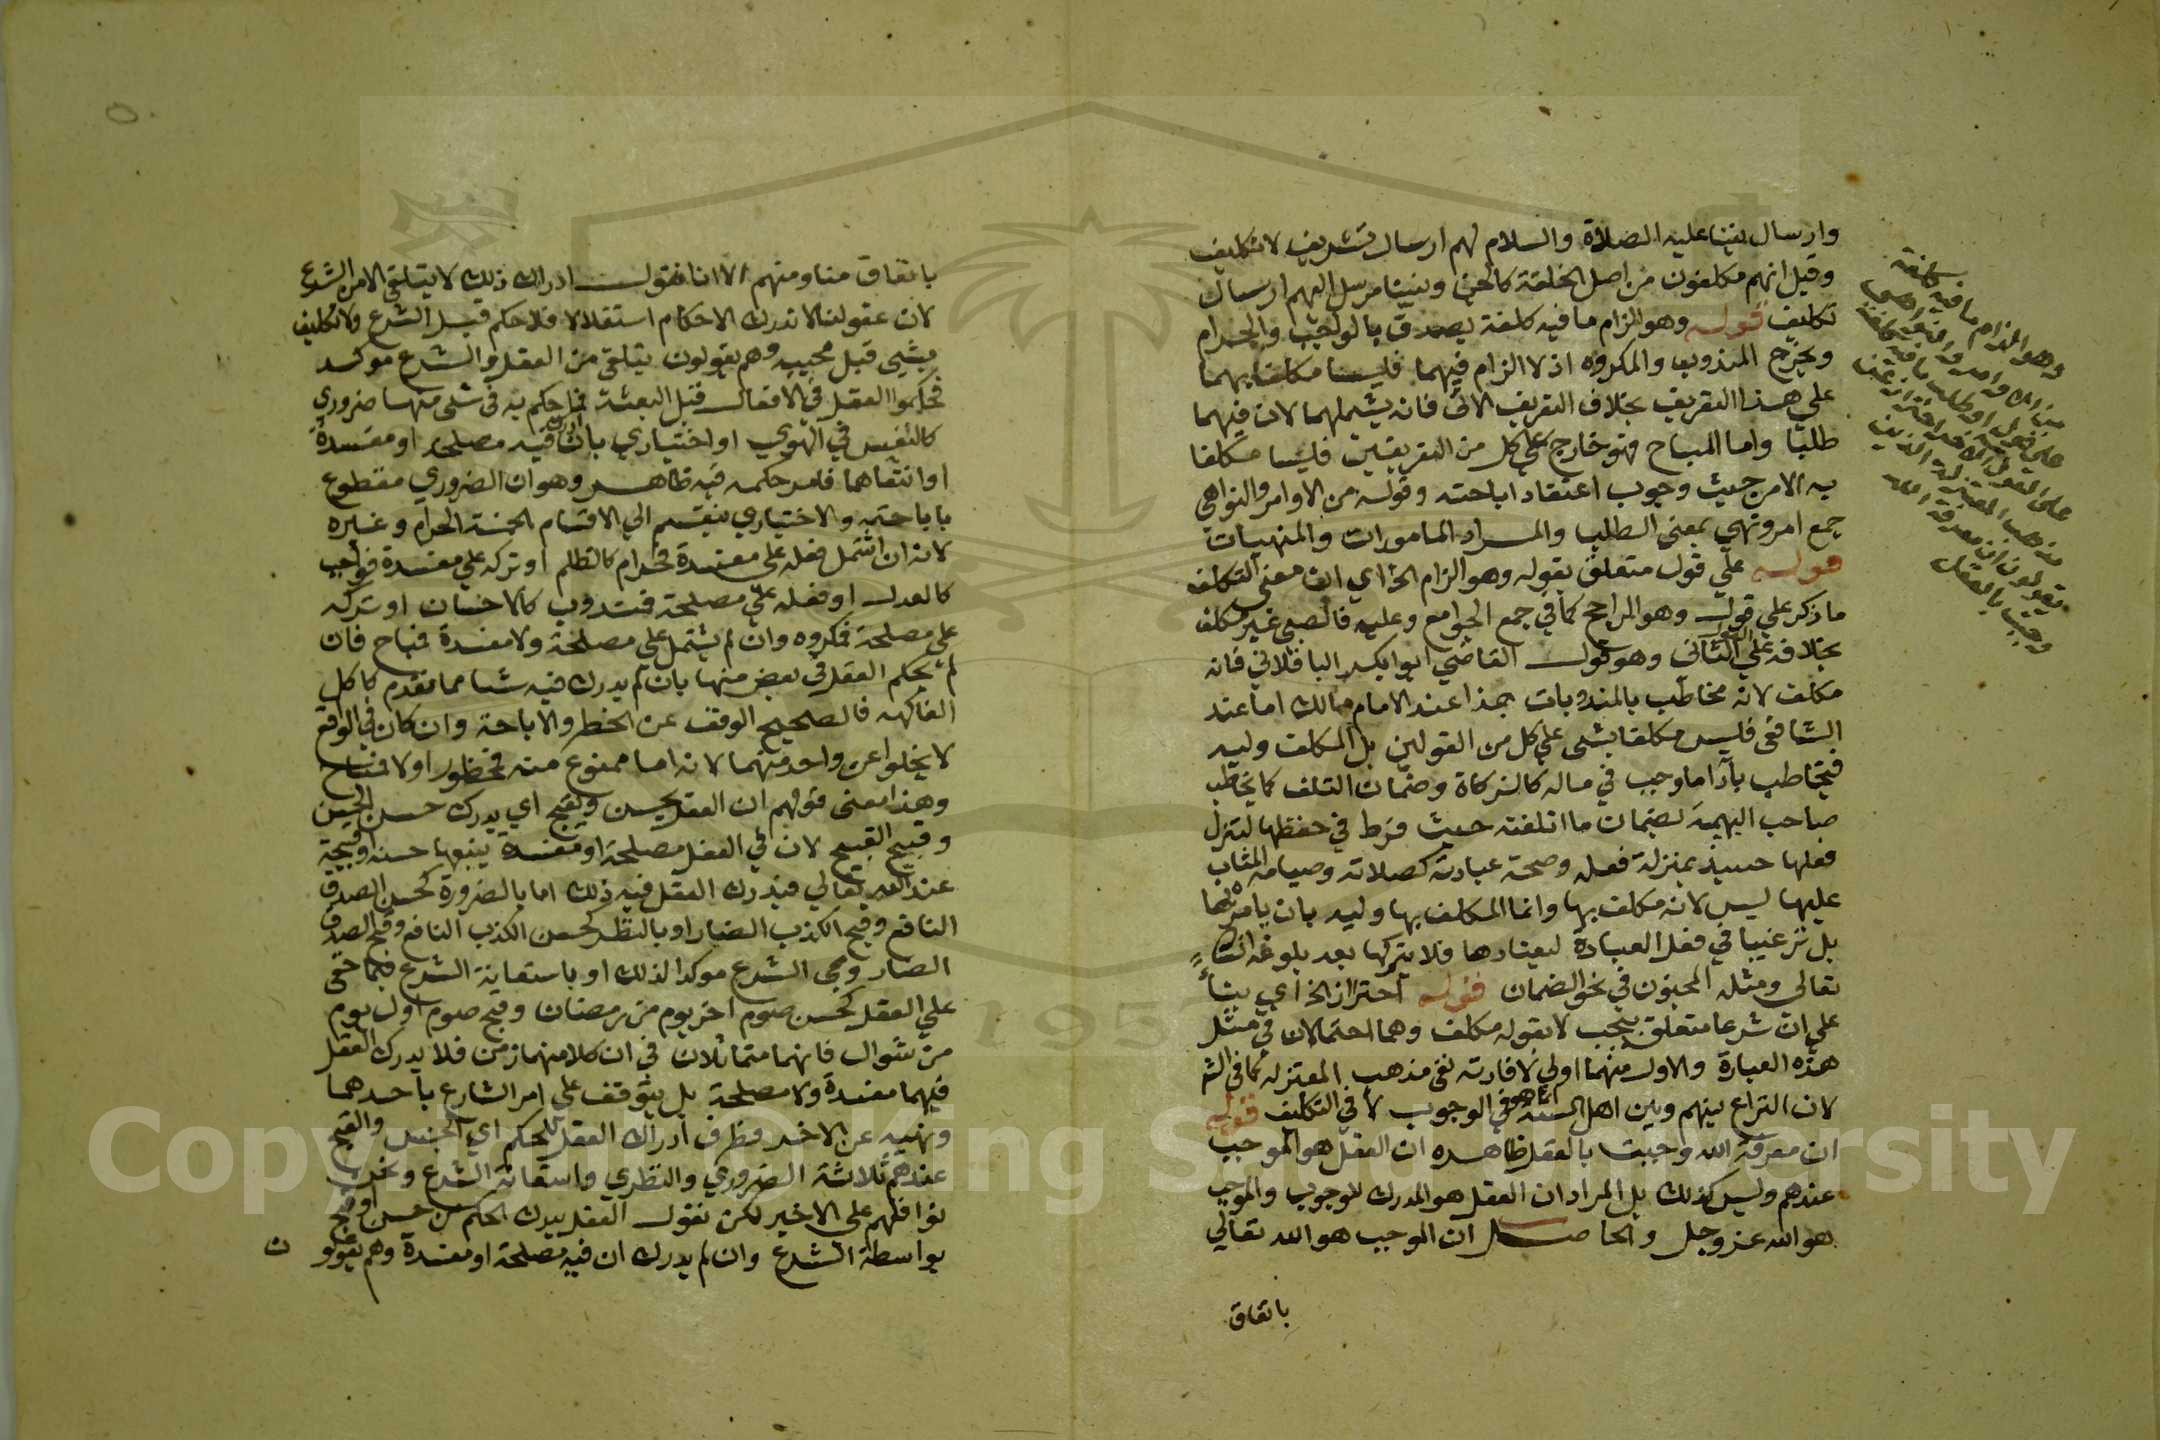 وارسال نبينا عليه الصلاة والسلام لهم ارسال تشريف لا تكليف
وقيل انهم مكلفون من اصل الخلقة كالجن ونبينا مرسل اليهم ارسال
تكليف قوله وهو الزام ما فيه كلفة يصدق بالواجب والحرام
ويخرج المندوب والمكروه اذ لا الزام فيهما فليسا مكلفا بهما
علي هذا التعريف بخلاف التعريف الاتى فانه يشملهما لان فيهما
طلبا واما المباح فهو خارج علي كل من التعريفين فليسا مكلفا
به الا من حيث وجوب اعتقاد اباحته وقوله من الاوامر والنواهي
جمع امر ونهي بمعنى الطلب والمراد المامورات والمنهيات
قوله علي قول متعلق بقوله وهو الزام الخ اي ان معنى التكليف
ما ذكر علي قول وهو الراجح كما في جمع الجوامع وعليه فالصبي غير مكلف
بخلافه علي الثاني وهو قول القاضي ابو ابكر الباقلاني فانه
مكلف لانه مخاطب بالمندوبات هذا عند الامام مالك اما عند
الشافعي فليس مكلفا بشى علي كل من القولين بل المكلف وليه
فيخاطب بآدا ما وجب في ماله كالزكاة وضمان التلف كما يخاطب
صاحب البهيمة بضمان ما اتلفته حيث فرط في حفظها لتنزل
فعلها حينيذ بمنزلة فعله وصحة عبادته كصلاته وصيامه المثاب
عليها ليس لانه مكلف بها وانما المكلف بها وليه بان يامره بها
بل ترغيبا في فعل العبادة ليعتادها فلا يتركها بعد بلوغه ان شاء
تعالى ومثله المجنون في نحو الضمان قوله احترازا الخ اي بناء
علي ان شرعا متعلق بيجب لا بقوله مكلف وهما احتمالان في مثل
هذه العبارة والاول منهما اولي لافادته نفي مذهب المعتزله كما في الش
لان النزاع بينهم وبين اهل السنة انما هو في الوجوب لا في التكليف قوله
ان معرفة الله وجبت بالعقل ظاهره ان العقل هو الموجب
عندهم وليس كذلك بل المراد ان العقل هو المدرك للوجوب والموجب
هو الله عز وجل والحاصل ان الموجب هو الله تعالي
باتفاق
وهو الزام ما فيه كلفة
من الاوامر والنواهي
علي قول او طلب ما فيه كلفة
مذهب المعتزلة الذين
يقولون ان معرفة الله
وجبت بالعقل
باتفاق منا ومنهم الا انا نقول ادراك ذلك لا يتلقى الا من الشرع
لان عقولنا لا تدرك الاحكام استقلالا فلا حكم قبل الشرع ولا تكليف
بشيي قبل مجييه وهم يقولون يتلقى من العقل والشرع موكد
فحكموا العقل في الافعال قبل البعثة فما حكم به في شي منها ضروري
كالتنفس في الهوي او اختياري بان ادرك فيه مصلحة او مفسدة
او انتفاهما فامر حكمه فيه ظاهر وهو ان الضروري مقطوع
باباحته والاختياري ينقسم الي الاقسام الخمسة الحرام وغيره
لانه ان اشتمل فعله على مفسدة فحرام كالظلم او تركه علي مفسدة فواجب
كالعدل او فعله علي مصلحة فمندوب كالاحسان او تركه
علي مصلحة فمكروه وان لم يشتمل علي مصلحة ولا مفسدة فمباح فان
لم يحكم العقل في بعض منها بان لم يدرك فيه شيا مما تقدم كاكل
الفاكهه فالصحيح الوقف عن الحظر والاباحة وان كان في الواقع
لا يخلوا عن واحد منهما لانه اما ممنوع منه فمحظور او لا فمباح
وهذا معنى قولهم ان العقل يحسن ويقبح اي يدرك حسن الحسن
وقبح القبيح لان في الفعل مصلحة او مفسدة يتبعها حسنه او قبحه
عند الله تعالي فيدرك العقل فيه ذلك اما بالضرورة كحسن الصدق
النافع وقبح الكذب الضار او بالنظر كحسن الكذب النافع وقبح الصدق
الضار ومجى الشرع موكدا لذلك او باستعانة الشرع فيما خفي
علي العقل كحسن صوم اخر يوم من رمضان وقبح صوم اول يوم
من شوال فانهما متماثلان في ان كلا منهما زمن فلا يدرك العقل
فيهما مفسدة ولا مصلحة بل يتوقف على امر الشارع باحدهما
ونهيه عن الاخر فطرق ادراك العقل للحكم اي الحسن والقبح
عندهم ثلاثة الضروري والنظري واستعانة الشرع ونحن
نوافقهم على الاخير لكن نقول العقل يدرك الحكم من حسن او قبح
بواسطة الشرع وان لم يدرك ان فيه مصلحة او مفسدة وهم يقولو ن
Copyright © King Saud University
195